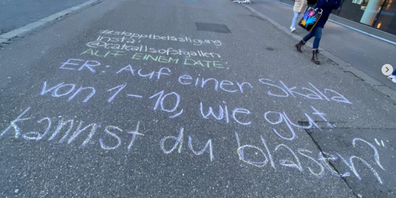 #stopptbelästigung
Insta:
@catcallsofstgallen
AUF EINEM DATE:
ER: „Auf einer Skala
von 1-10, wie gut
kannst du blasen?"